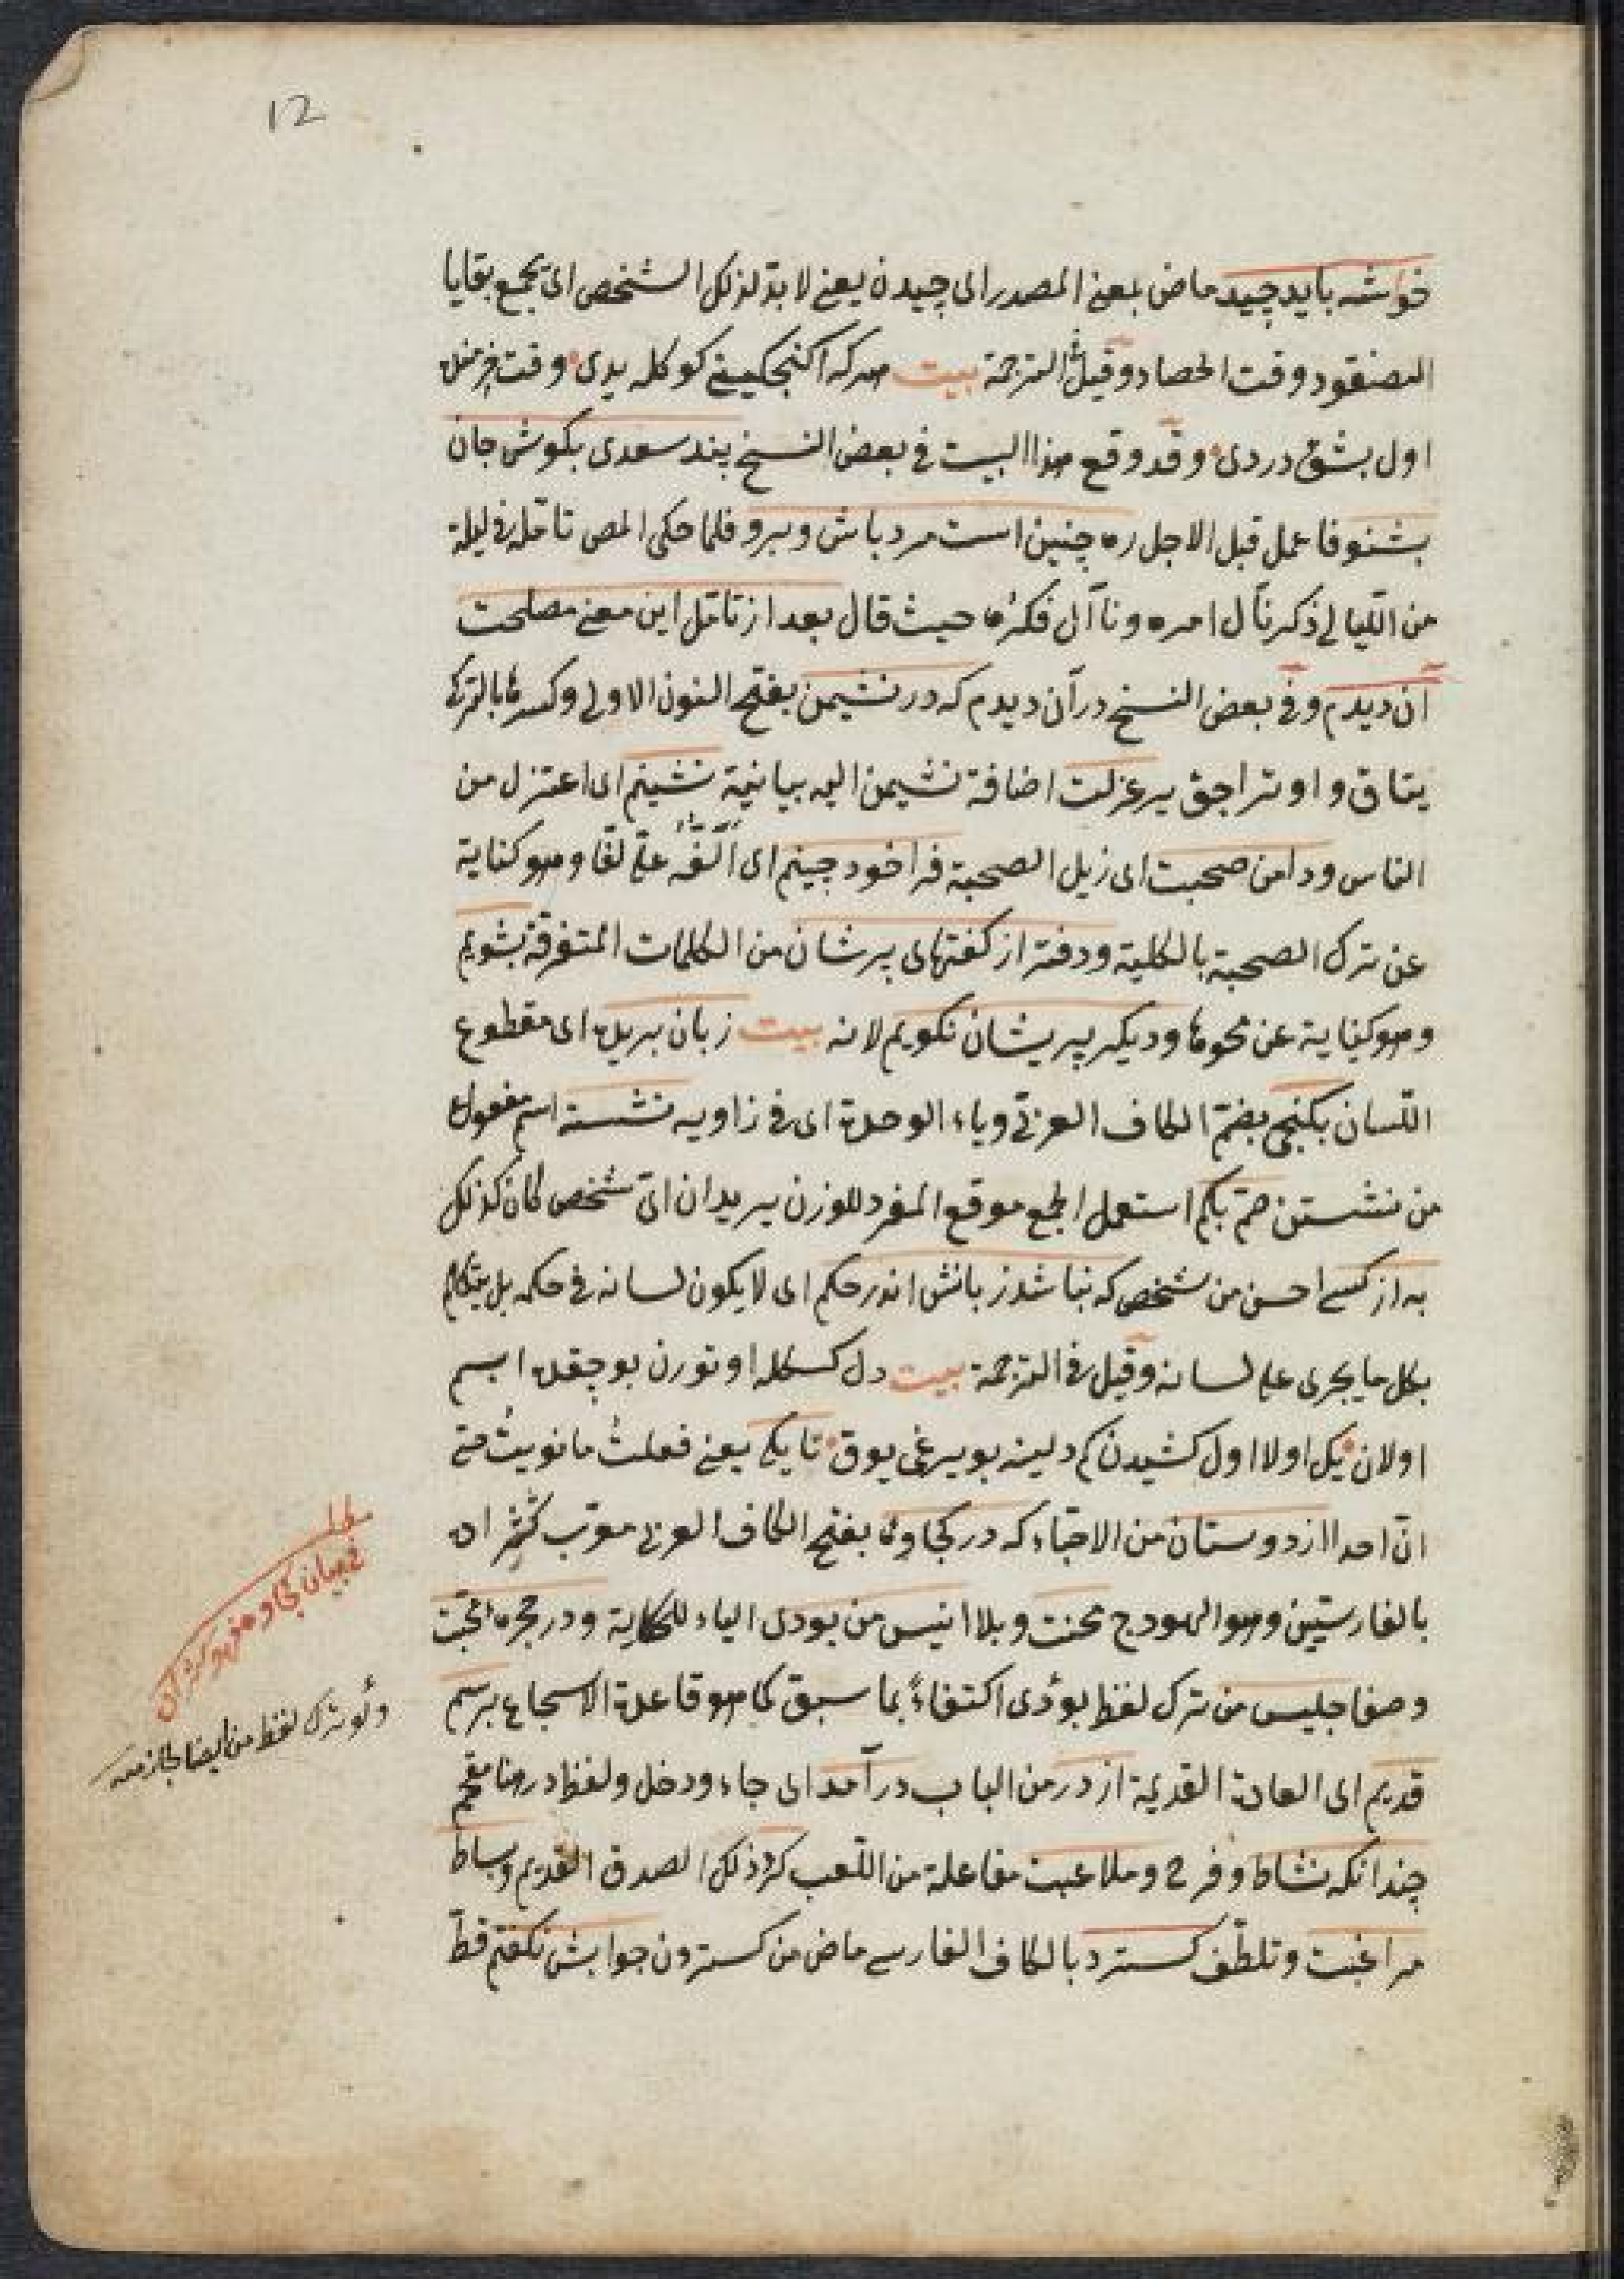 12
خوشه بايد چيد ماض بمعنى المصدر اى چيدن يعنى لا بد لذلك الشخص اى يجمع بقايا
العنقود وقت الحصاد وقيل فى الترجمة بيت هر كه اكنجكينى كوكله يدى وقت خرمنده
اول بشق دردى وقد وقع هذا البيت فى بعض النسخ پند سعدى بكوش جان
بشنو فاعمل قبل الاجل ره چنين است مرد باش وبرو فلما حكى المص تامله فى ليلة
من الليالى ذكر مآل امره ومآل فكره حيث قال بعد از تامل اين معنى مصلحت
آن ديدم وفى بعض النسخ درآن ديدم كه در نشيمن بفتح النون الاولى وكسرها بالتركى
يتاق و اوتراجق ير عزلت اضافة نشيمن اليه بيانية نشينم اى اعتزل من
الناس ودامن صحبت اى زيل الصحبة فراخود چينم اى الفه على لفا وهو كناية
عن ترك الصحبة بالكلية ودفتر از كفتهاى پرشان من الكلمات المتفرقة بشويم
وهو كناية عن محوها وديكر پريشان نكويم لانه بيت زبان بريده اى مقطوع
اللسان بكنجى بضم الكاف العربى وياء الوحدة اى فى زاويه نشسته اسم مفعول
من نشستن صم بكم استعمل الجمع موقع المفرد للوزن يريد ان اى شخص كان كذلك
به از كسى احسن من شخص كه نباشد زبانش اندر حكم اى لا يكون لسانه فى حكمه بل يتكلم
بكل ما يجرى على لسانه وقيل فى الترجمة بيت دل كسكله اوتورن بوجقده ابسم
اولان يك اولا اول كشيدن كم دلينه بويرغى يوق تا يكى يعنى فعلت ما نويت حتى
ان احدا از دوستان من الاحباء كه در كجاوه بفتح الكاف العربى معرب كثر اوه
بالفارسيتين وهو الهودج محنت وبلا انيس من بودى الياء للحكاية ودر حجره محبت
وصفا جليس من ترك لفظ بودى اكتفاء بما سبق كما هو قاعدة الاسجاع برسم
قديم اى العادة القديمة از در من الباب درآمد اى جاء ودخل ولفظ در هنا مقحم
چندانكه نشاط وفرح وملاعبت مفاعلة من اللعب كرد ذلك الصدق القديم وبساط
مراغبت وتلطف كسترد بالكاف الفارسى ماض من كستردن جوابش نكفتم قط
مطلب
فى بيان كجاوه
ولو ترك لفظ من ايضا لجاز منه